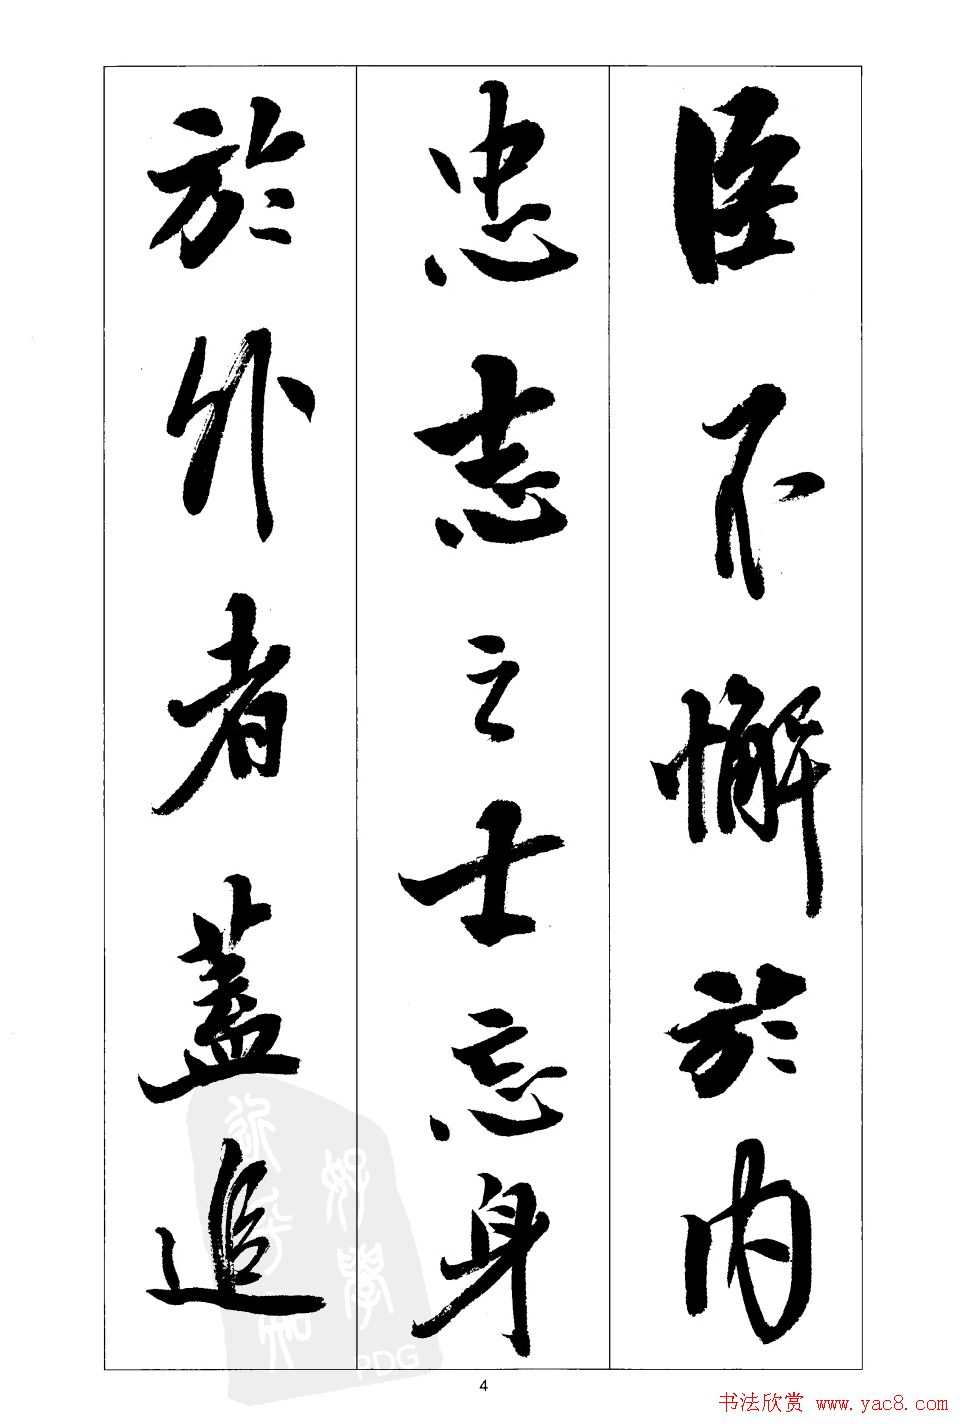 臣不懈於内
忠志之士忘身
於外者蓋追
4
PDG
书法欣赏 www.yac8.com